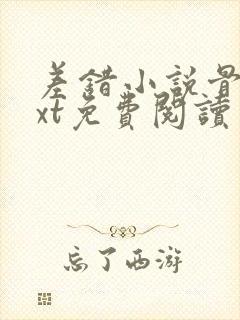 差錯小説
xt免費閱讀
忘了西游